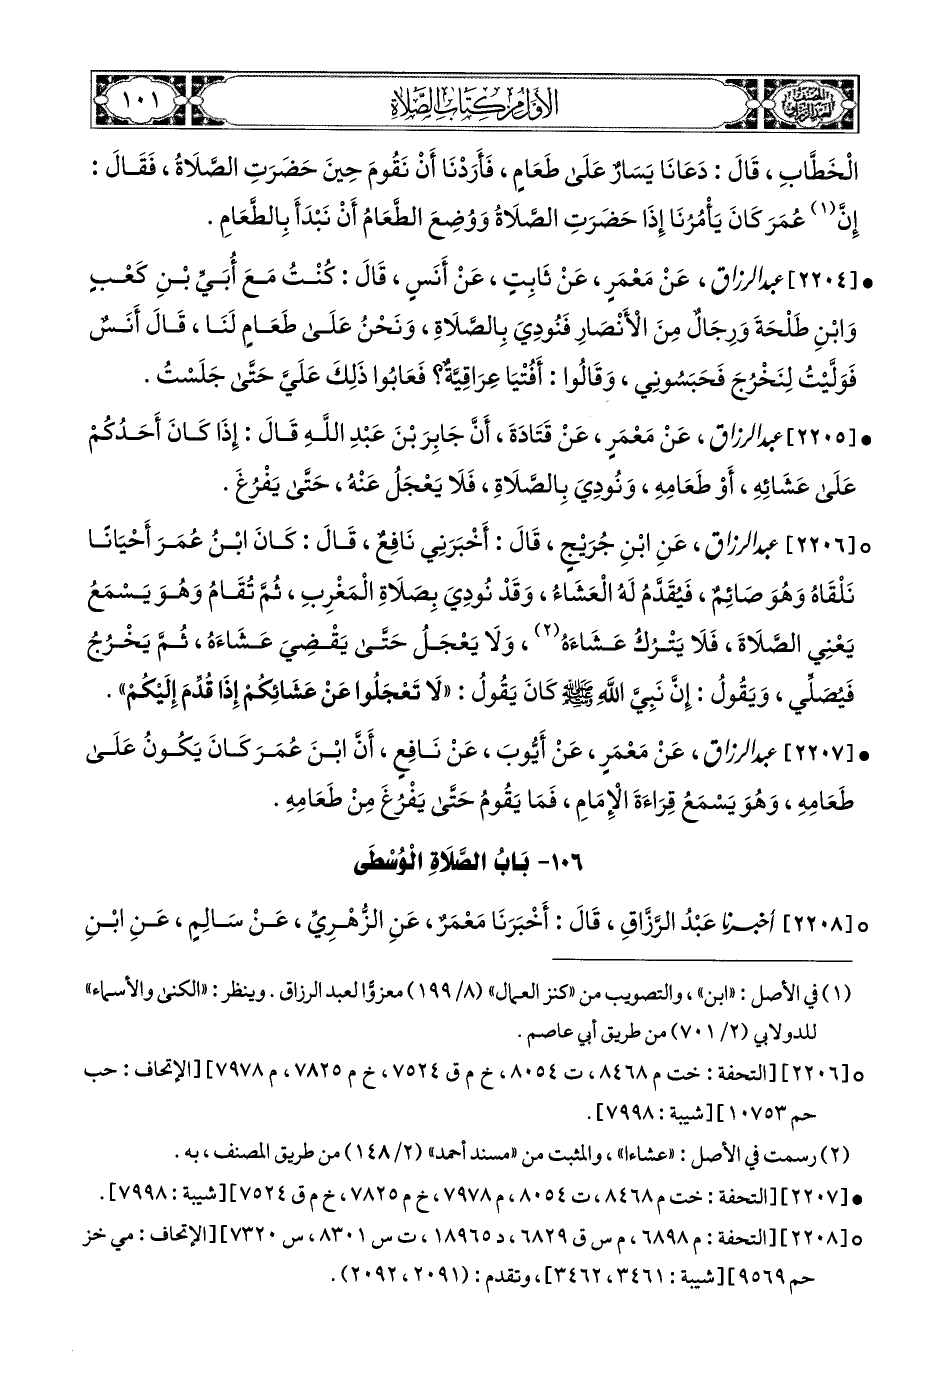 المصنف لعبد الرزاق
الأول من كتاب الصلاة
١٠١
الْخَطَّابِ ، قَالَ : دَعَانَا يَسَارٌ عَلَى طَعَامٍ ، فَأَرَدْنَا أَنْ نَقُومَ حِينَ حَضَرَتِ الصَّلَاةُ ، فَقَالَ :
إِنَّ(١) عُمَرَ كَانَ يَأْمُرُنَا إِذَا حَضَرَتِ الصَّلَاةُ وَوُضِعَ الطَّعَامُ أَنْ نَبْدَأَ بِالطَّعَامِ .
• [٢٢٠٤] عبد الرزاق ، عَنْ مَعْمَرٍ ، عَنْ ثَابِتٍ ، عَنْ أَنَسٍ ، قَالَ : كُنْتُ مَعَ أُبَيِّ بْنِ كَعْبٍ
وَابْنِ طَلْحَةَ وَرِجَالٌ مِنَ الْأَنْصَارِ فَنُودِيَ بِالصَّلَاةِ ، وَنَحْنُ عَلَى طَعَامٍ لَنَا ، قَالَ أَنَسٌ
فَوَلَّيْتُ لِنَخْرُجَ فَحَبَسُونِي ، وَقَالُوا : أَفُتْيَا عِرَاقِيَّةٌ؟ فَعَابُوا ذَلِكَ عَلَيَّ حَتَّى جَلَسْتُ .
• [٢٢٠٥] عبد الرزاق ، عَنْ مَعْمَرٍ ، عَنْ قَتَادَةَ ، أَنَّ جَابِرَ بْنَ عَبْدِ اللَّهِ قَالَ : إِذَا كَانَ أَحَدُكُمْ
عَلَى عَشَائِهِ ، أَوْ طَعَامِهِ ، وَنُودِيَ بِالصَّلَاةِ ، فَلَا يَعْجَلْ عَنْهُ ، حَتَّى يَفْرُغَ .
○ [٢٢٠٦] عبد الرزاق ، عَنِ ابْنِ جُرَيْجٍ ، قَالَ : أَخْبَرَنِي نَافِعٌ ، قَالَ : كَانَ ابْنُ عُمَرَ أَحْيَانًا
نَلْقَاهُ وَهُوَ صَائِمٌ ، فَيُقَدَّمُ لَهُ الْعَشَاءُ ، وَقَدْ نُودِيَ بِصَلَاةِ الْمَغْرِبِ ، ثُمَّ تُقَامُ وَهُوَ يَسْمَعُ
يَعْنِي الصَّلَاةَ ، فَلَا يَتْرُكُ عَشَاءَهُ(٢) ، وَلَا يَعْجَلُ حَتَّى يَقْضِيَ عَشَاءَهُ ، ثُمَّ يَخْرُجُ
فَيُصَلِّي ، وَيَقُولُ : إِنَّ نَبِيَّ اللَّهِ ﷺ كَانَ يَقُولُ : «لَا تَعْجَلُوا عَنْ عَشَائِكُمْ إِذَا قُدِّمَ إِلَيْكُمْ» .
• [٢٢٠٧] عبد الرزاق ، عَنْ مَعْمَرٍ ، عَنْ أَيُّوبَ ، عَنْ نَافِعٍ ، أَنَّ ابْنَ عُمَرَ كَانَ يَكُونُ عَلَى
طَعَامِهِ ، وَهُوَ يَسْمَعُ قِرَاءَةَ الْإِمَامِ ، فَمَا يَقُومُ حَتَّى يَفْرُغَ مِنْ طَعَامِهِ .
١٠٦- بَابُ الصَّلَاةِ الْوُسْطَى
○ [٢٢٠٨] أخبرنا عَبْدُ الرَّزَّاقِ ، قَالَ : أَخْبَرَنَا مَعْمَرٌ ، عَنِ الزُّهْرِيِّ ، عَنْ سَالِمٍ ، عَنِ ابْنِ
(١) في الأصل : «ابن» ، والتصويب من «كنز العمال» (٨/ ١٩٩) معزوًّا لعبد الرزاق . وينظر : «الكنى والأسماء»
للدولابي (٢/ ٧٠١) من طريق أبي عاصم .
○ [٢٢٠٦] [التحفة : خت م ٨٤٦٨ ، ت ٨٠٥٤ ، خ م ق ٧٥٢٤ ، خ م ٧٨٢٥ ، م ٧٩٧٨] [الإتحاف : حب
حم ١٠٧٥٣] [شيبة : ٧٩٩٨] .
(٢) رسمت في الأصل : «عشاءا» ، والمثبت من «مسند أحمد» (٢/ ١٤٨) من طريق المصنف ، به .
• [٢٢٠٧] [التحفة : خت م ٨٤٦٨ ، ت ٨٠٥٤ ، م ٧٩٧٨ ، خ م ٧٨٢٥ ، خ م ق ٧٥٢٤] [شيبة : ٧٩٩٨] .
○ [٢٢٠٨] [التحفة : م ٦٨٩٨ ، م س ق ٦٨٢٩ ، د ١٨٩٦٥ ، ت س ٨٣٠١ ، س ٧٣٢٠] [الإتحاف : مي خز
حم ٩٥٦٩] [شيبة : ٣٤٦١ ، ٣٤٦٢] ، وتقدم : (٢٠٩١ ، ٢٠٩٢) .